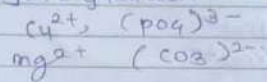 Cu²⁺, (PO4)³⁻
mg²⁺ (CO3)²⁻